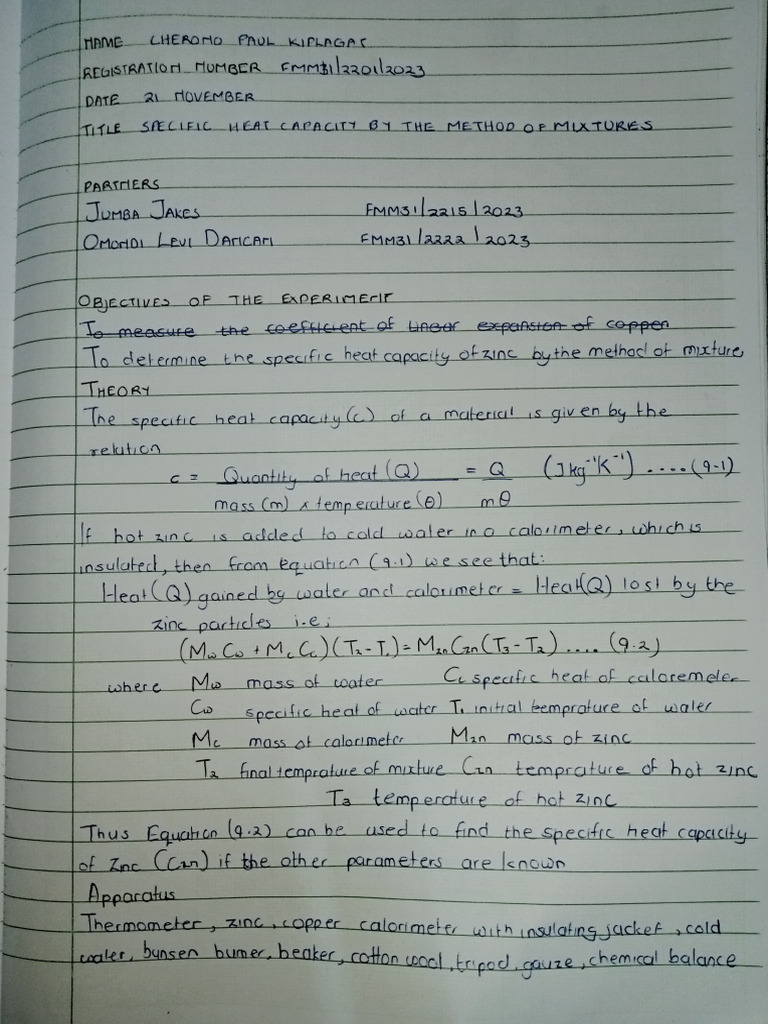 NAME CHEROMO PAUL KIPLAGAT
REGISTRATION NUMBER FMM31/2201/2023
DATE 21 NOVEMBER
TITLE SPECIFIC HEAT CAPACITY BY THE METHOD OF MIXTURES
PARTNERS
JUMBA JAKES FMM31/2215/2023
OMONDI LEVI DANCAN FMM31/2222/2023
OBJECTIVES OF THE EXPERIMENT
To measure the coefficient of linear expansion of copper
To determine the specific heat capacity of zinc by the method of mixture
THEORY
The specific heat capacity (c) of a material is given by the
relation
c = Quantity of heat (Q) = Q (Jkg⁻¹K⁻¹) .... (9.1)
mass (m) x temperature (θ) mθ
If hot zinc is added to cold water in a calorimeter, which is
insulated, then from equation (9.1) we see that:
Heat (Q) gained by water and calorimeter = Heat(Q) lost by the
zinc particles i.e;
(Mw Cw + Mc Cc) (T2 - T1) = Mzn Czn (T3 - T2) .... (9.2)
where Mw mass of water Cc specific heat of caloremeter
Cw specific heat of water T1 initial temprature of water
Mc mass of calorimeter Mzn mass of zinc
T2 final temprature of mixture Czn temprature of hot zinc
T3 temperature of hot zinc
Thus Equation (9.2) can be used to find the specific heat capacity
of Zinc (Czn) if the other parameters are known
Apparatus
Thermometer, zinc, copper calorimeter with insulating jacket, cold
water, bunsen burner, beaker, cotton wool, tripod, gauze, chemical balance